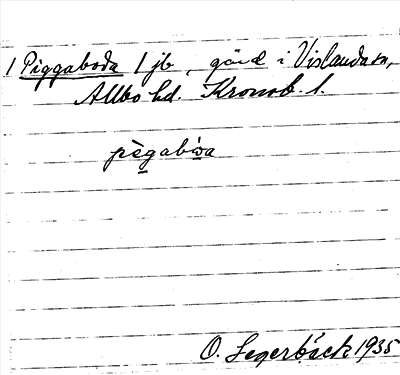 1 Piggaboda 1 jb, gård i Vislanda sn,
Allbo hd. Kronob. l.
O. Segerbäck 1935